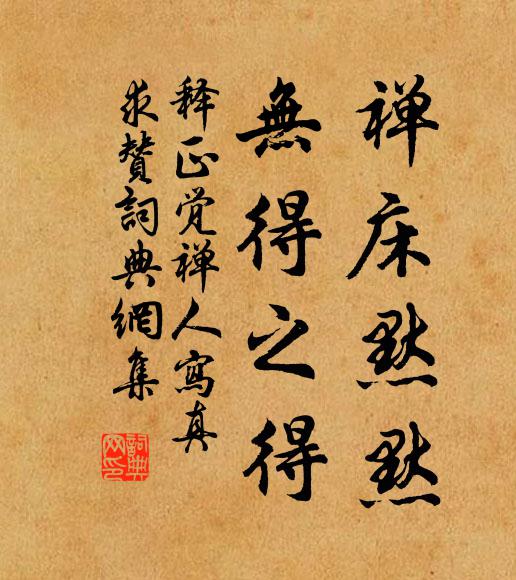 禅床默默
無得之得
释正觉禅人寫真
求赞詞典網集
詞典
网印